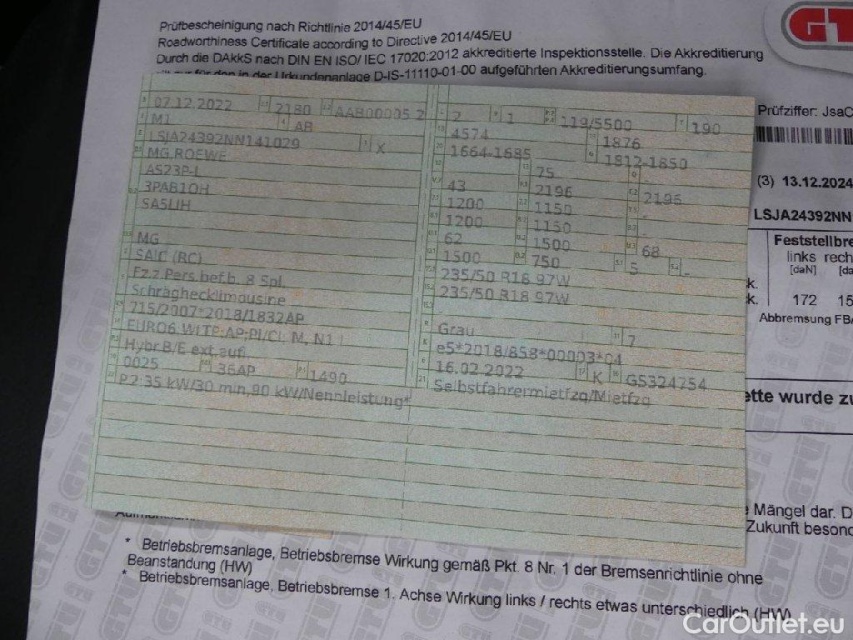 Prüfbescheinigung nach Richtlinie 2014/45/EU
Roadworthiness Certificate according to Directive 2014/45/EU
Durch die DAkkS nach DIN EN ISO/ IEC 17020:2012 akkreditierte Inspektionsstelle. Die Akkreditierung
nur für den in der Urkundenanlage D-IS-11110-01-00 aufgeführten Akkreditierungsumfang.
GT
Prüfziffer: JsaC
(3) 13.12.2024
LSJA24392NN
Feststellbre
links rech
[daN] [da
k.
k. 172 15
Abbremsung FBA
ette wurde zu
Mängel dar. D
Zukunft besond
07.12.2022 2180 AAB00005 2
M1 AB
LSJA24392NN141029 X
MG ROEWE
AS23P-L
3PAB1OH
SA5LIH
MG
SAIC (RC)
Fz.z.Pers.bef.b. 8 Spl.
Schräghecklimousine
715/2007*2018/1832AP
EURO6 WLTP;AP;PI/CI; M, N1 I
Hybr.B/E ext.aufl.
0025 36AP 1490
P2:35 kW/30 min,90 kW/Nennleistung*
2 1 119/5500 190
4574 1876
1664-1685 1812-1850
75 -
43 2196 2195
1200 1150 -
1200 1150 -
62 1500 68
1500 750 5 -
235/50 R18 97W
235/50 R18 97W
Grau 7
e5*2018/858*00003*04
16.02.2022 K GS324754
Selbstfahrermietfzg/Mietfzg
* Betriebsbremsanlage, Betriebsbremse Wirkung gemäß Pkt. 8 Nr. 1 der Bremsenrichtlinie ohne
Beanstandung (HW)
* Betriebsbremsanlage, Betriebsbremse 1. Achse Wirkung links / rechts etwas unterschiedlich (HW)
CarOutlet.eu